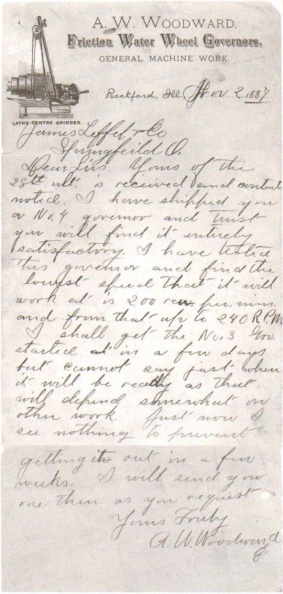 A. W. WOODWARD,
Friction Water Wheel Governors,
GENERAL MACHINE WORK
Rockford, Ill Nov 2 1887
LATHE CENTRE GRINDER.
James Leffel & Co
Springfeild O.
Dear Sirs Yours of the
28th ult. is received and contents
notied. I have shipped you
a No. 4 govenor and trust
you will find it entirely
satisfactory. I have tested
this govenor and find the
lowest speed that it will
work at is 200 rev. per. min.
and from that up to 240 RPM
I shall get the No. 3 Gov.
started in a few days
but cannot say just when
it will be ready as that
will depend somewhat on
other work Just now I
see nothing to prevent
getting it out in a few
weeks. I will send you
one then as you request
Yours Truly
A. W. Woodward